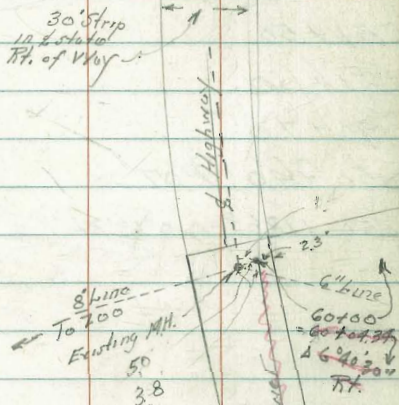 30' Strip
in & State
Rt. of Way
Highway
2.3'
8" Line
To 200
Existing M.H.
5.0
3.8
6" Line
60+00
= 60+04.34
Δ 6°40'30"
Rt.